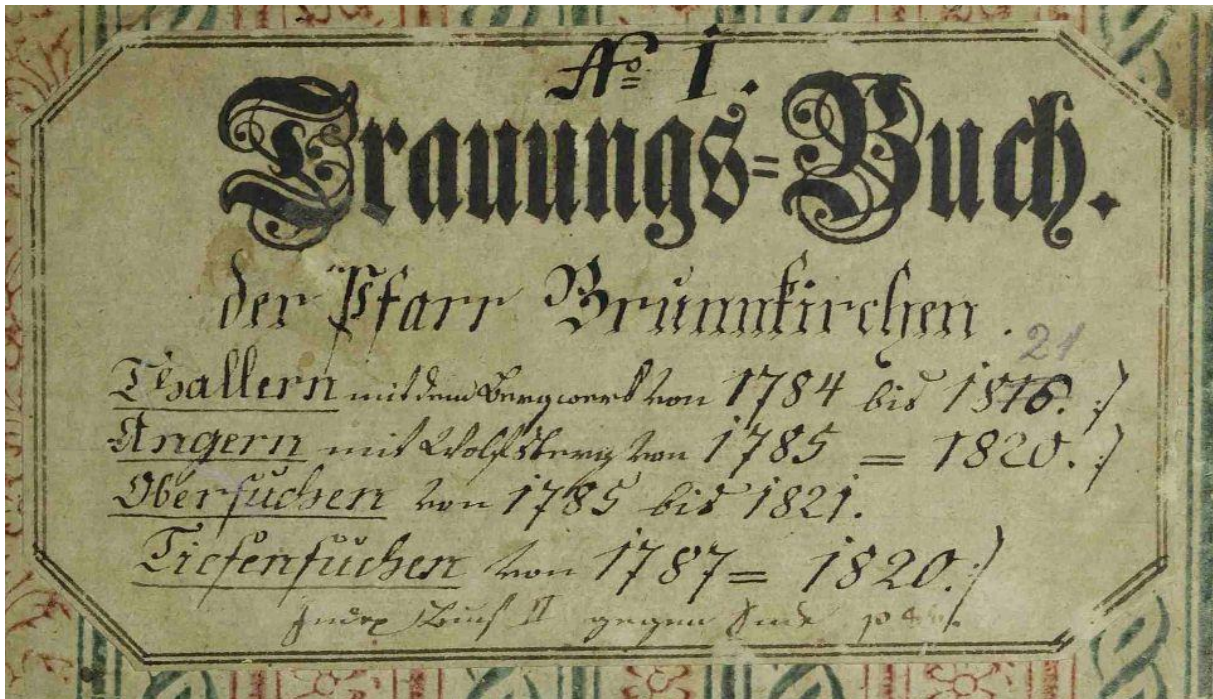 No 1.
Trauungs=Buch.
der Pfarr Brunnkirchen.
21
Thallern mit dem Bergwerk von 1784 bis 1816. :)
Angern mit Wolfsberg von 1785 = 1820. :)
Oberfuchen von 1785 bis 1821.
Tiefenfuchen von 1787 = 1820. :)
Index Buch II gegen Ende p